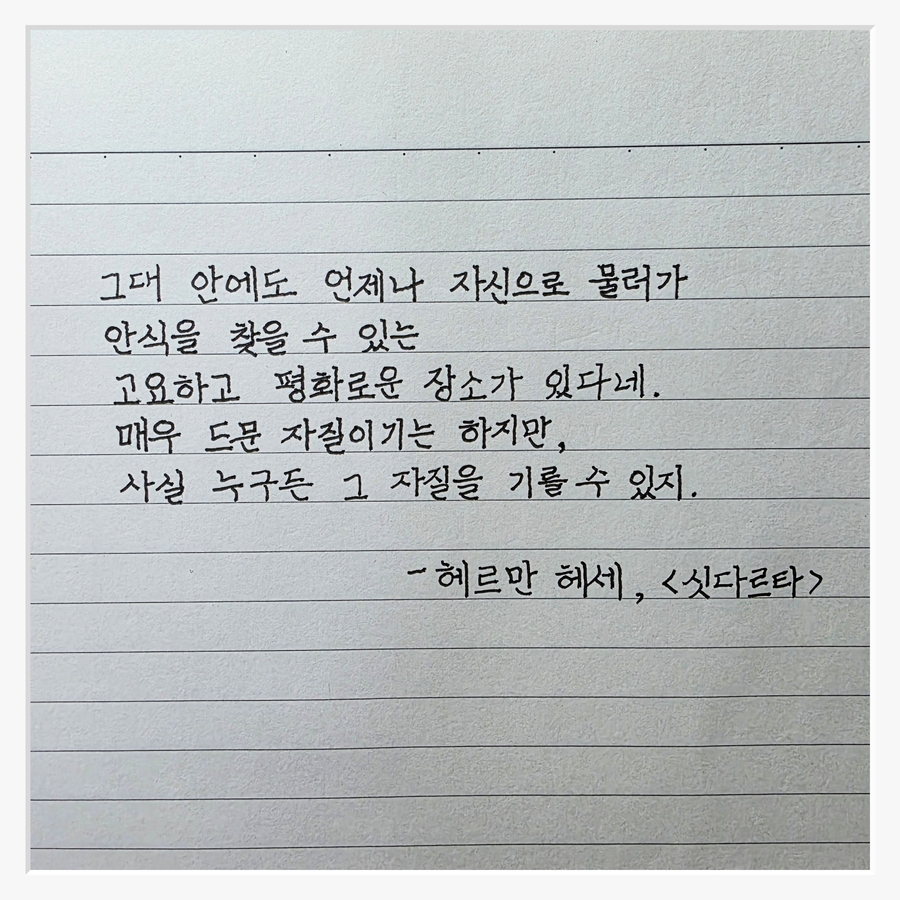 그대 안에도 언제나 자신으로 물러가
안식을 찾을 수 있는
고요하고 평화로운 장소가 있다네.
매우 드문 자질이기는 하지만,
사실 누구든 그 자질을 기를 수 있지.
- 헤르만 헤세, <싯다르타>